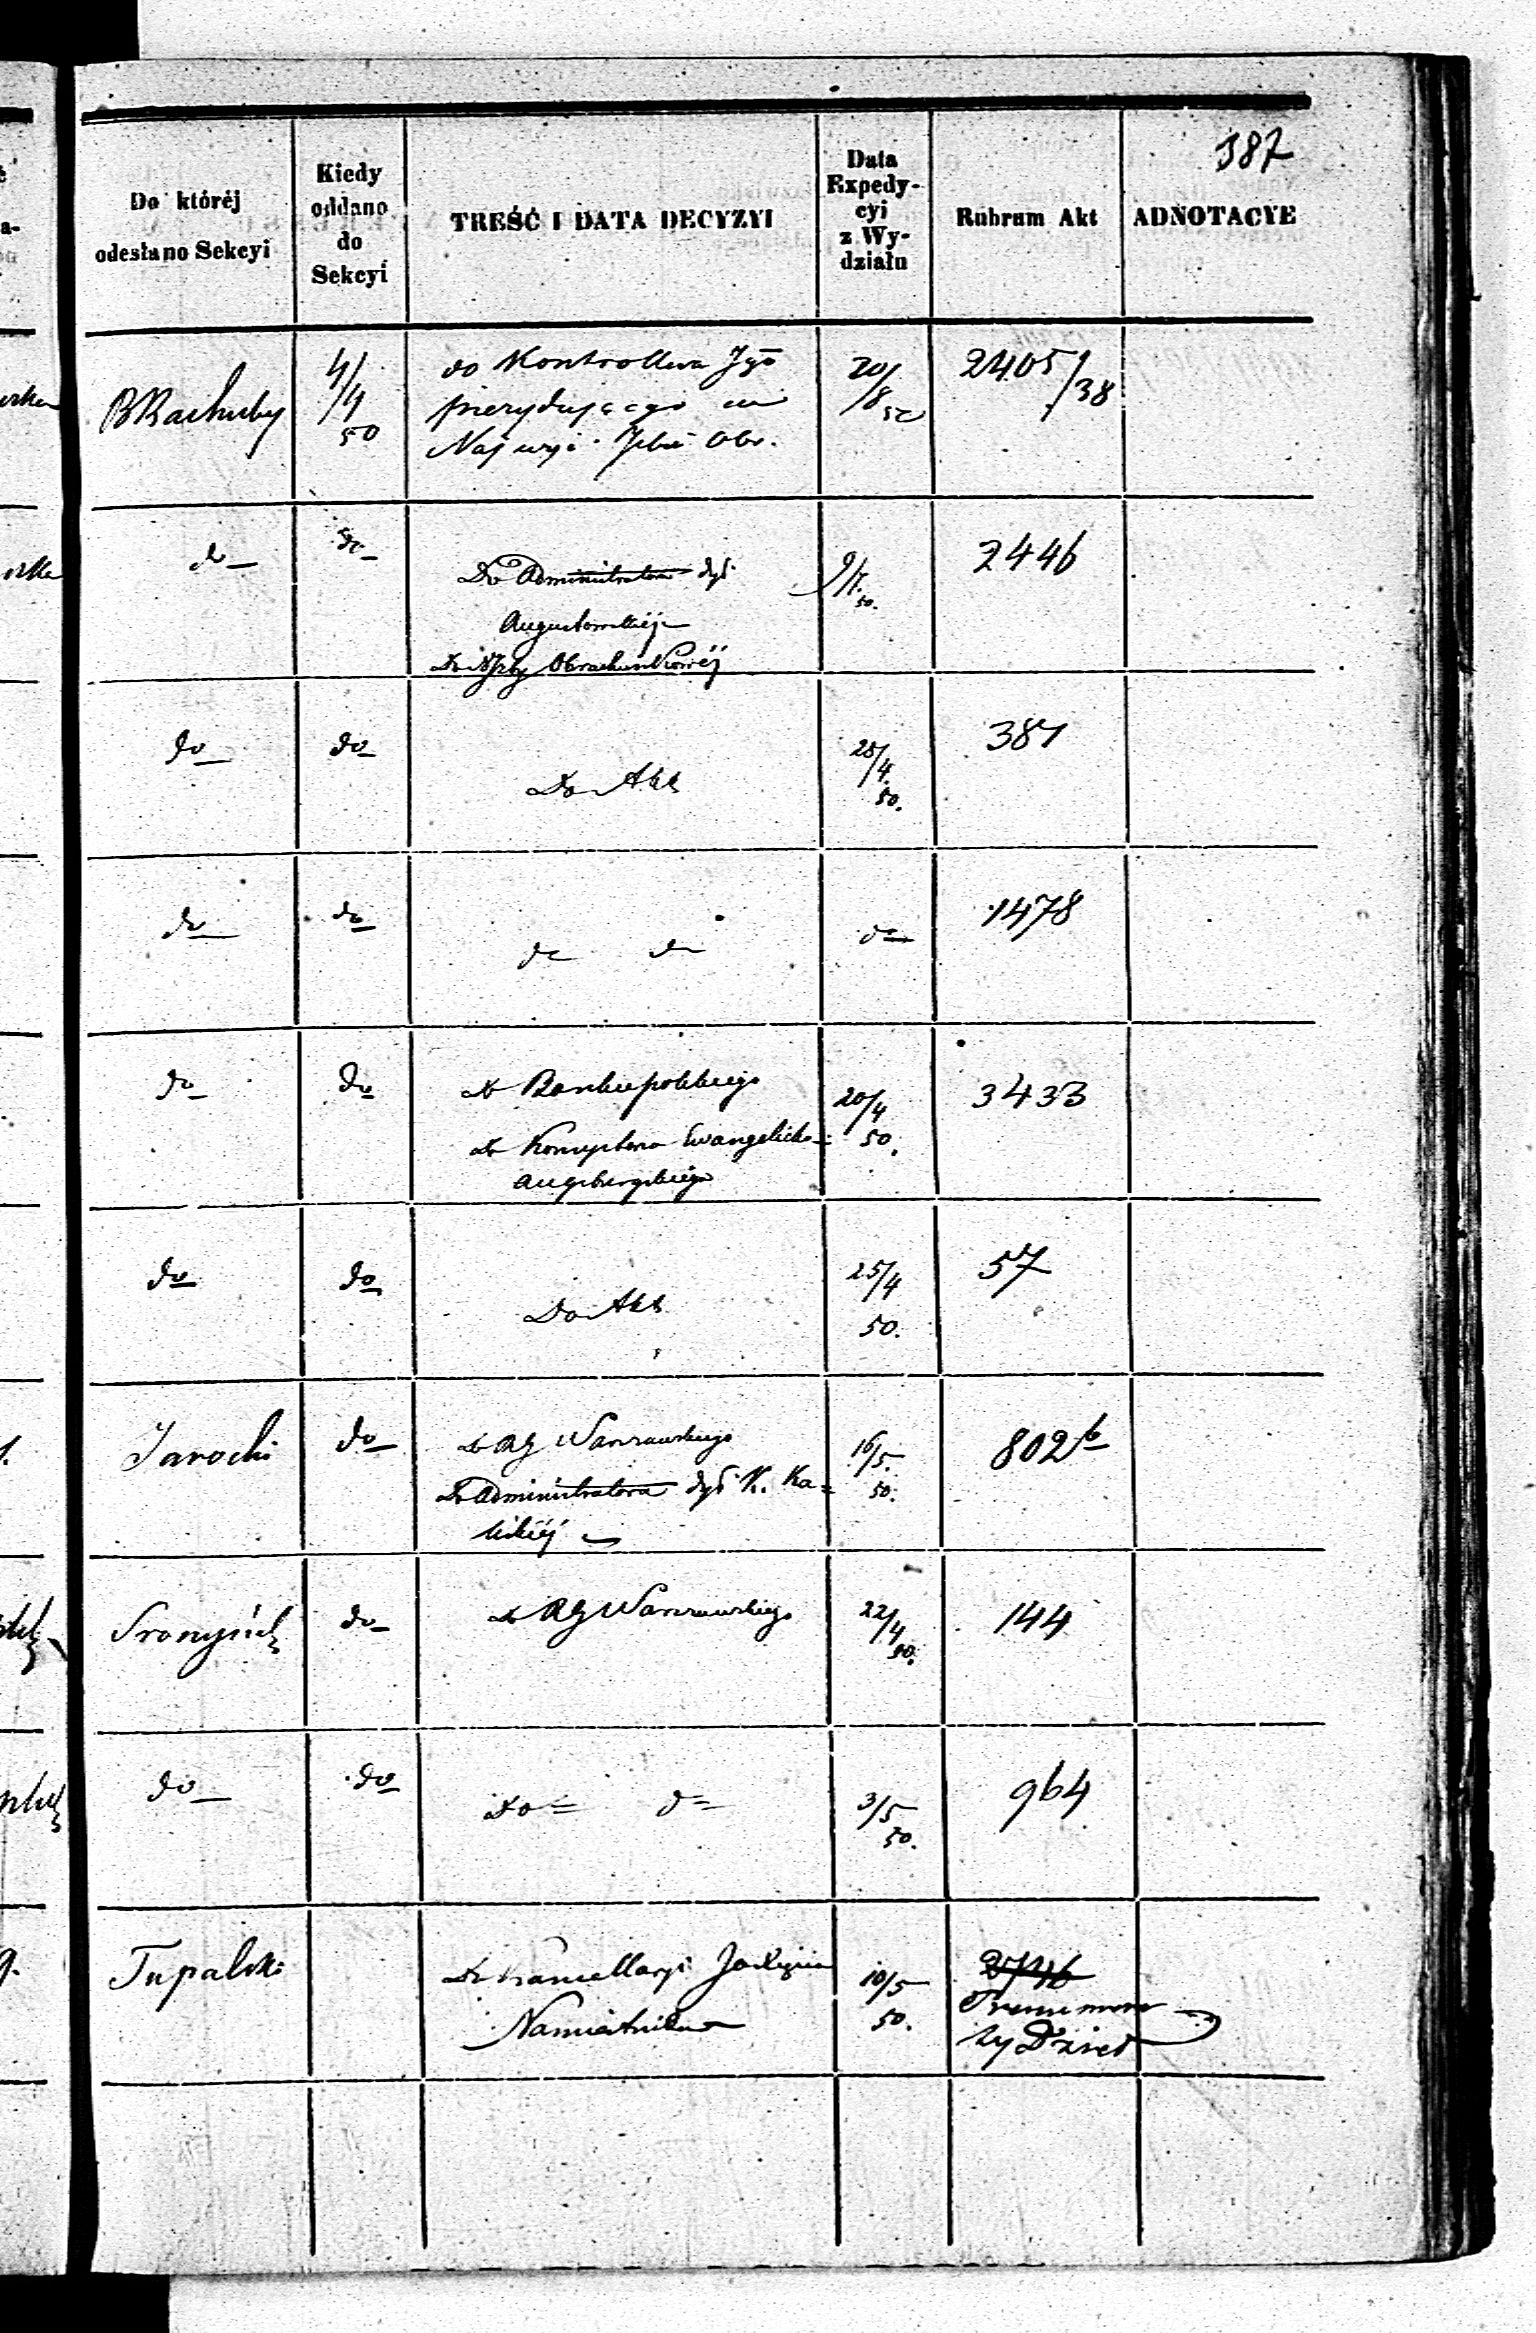 387
Do któréj
odesłano Sekcyi
Kiedy
oddano
do
Sekcyi
TREŚĆ I DATA DECYZYI
Data
Expedy-
cyi
z Wy-
działu
Rubrum Akt
ADNOTACYE
B Rachuby
4/4
50
do Kontrollera Jgo
prezydującego w
Najwyż. Izbie Obr.
20/8 50
2405/38
do
do
Do Administratora dyj.
Augustowskiéj
Do Nj Izby Obrachunkowéj
50.
2446
do
do
Do Akt
25/4.
50.
381
do
do
do do
do
1478
do
do
do Banku polskiego
do Konsystorza Ewangelicko=
Augsburgskiego
20/4
50.
3433
do
do
Do Akt
25/4
50.
57
Jarocki
do
do RG Warszawskiego
Do Administratora dyj. K. Ka=
liskiéj
16/5.
50.
802 b
do
do RG Warszawskiego
22/4
50.
144
do
do
Do= d=
3/5
50.
964
Tupalski
do Kancellaryi Jo Xięcia
Namiestnika
10/5
50.